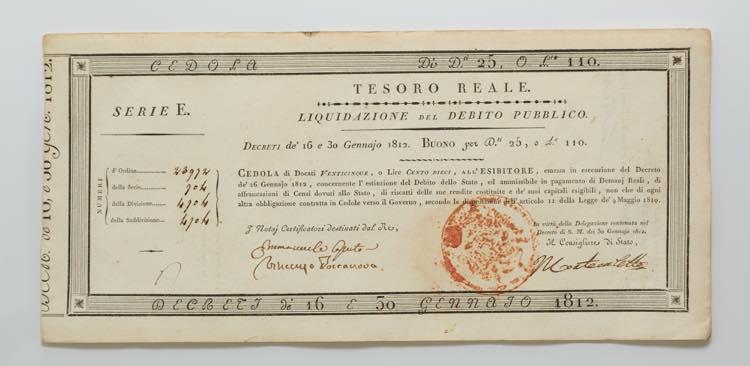 CEDOLA Di D.ti 25, O L.re 110.
TESORO REALE.
SERIE E.
LIQUIDAZIONE DEL DEBITO PUBBLICO.
DECRETI de' 16 e 30 Gennajo 1812. BUONO per D.ti 25, o L.re 110.
NUMERI
d'Ordine 23972
della Serie 704
della Divisione 4704
della Suddivisione 4704
CEDOLA di Docati VENTICINQUE, o Lire CENTO DIECI, ALL'ESIBITORE, emessa in esecuzione del Decreto
de' 16 Gennajo 1812, concernente l'estinzione del Debito dello Stato, ed ammissibile in pagamento di Demanj Reali, di
affrancazioni di Censi dovuti allo Stato, di riscatti delle sue rendite costituite e de' suoi capitali esigibili, non che di ogni
altra obbligazione contratta in Cedole verso il Governo, secondo le disposizioni dell'articolo 11 della Legge de' 4 Maggio 1810.
I Notaj Certificatori destinati dal Re,
In virtù della Delegazione contenuta nel
Decreto di S. M. dei 30 Gennajo 1812.
Il Consigliere di Stato,
Emmanuele Caputo
Vincenzo Torranova
DECRETI di 16 E 30 GENNAJO 1812.
DECR. de 16, e 30 Gen. 1812.